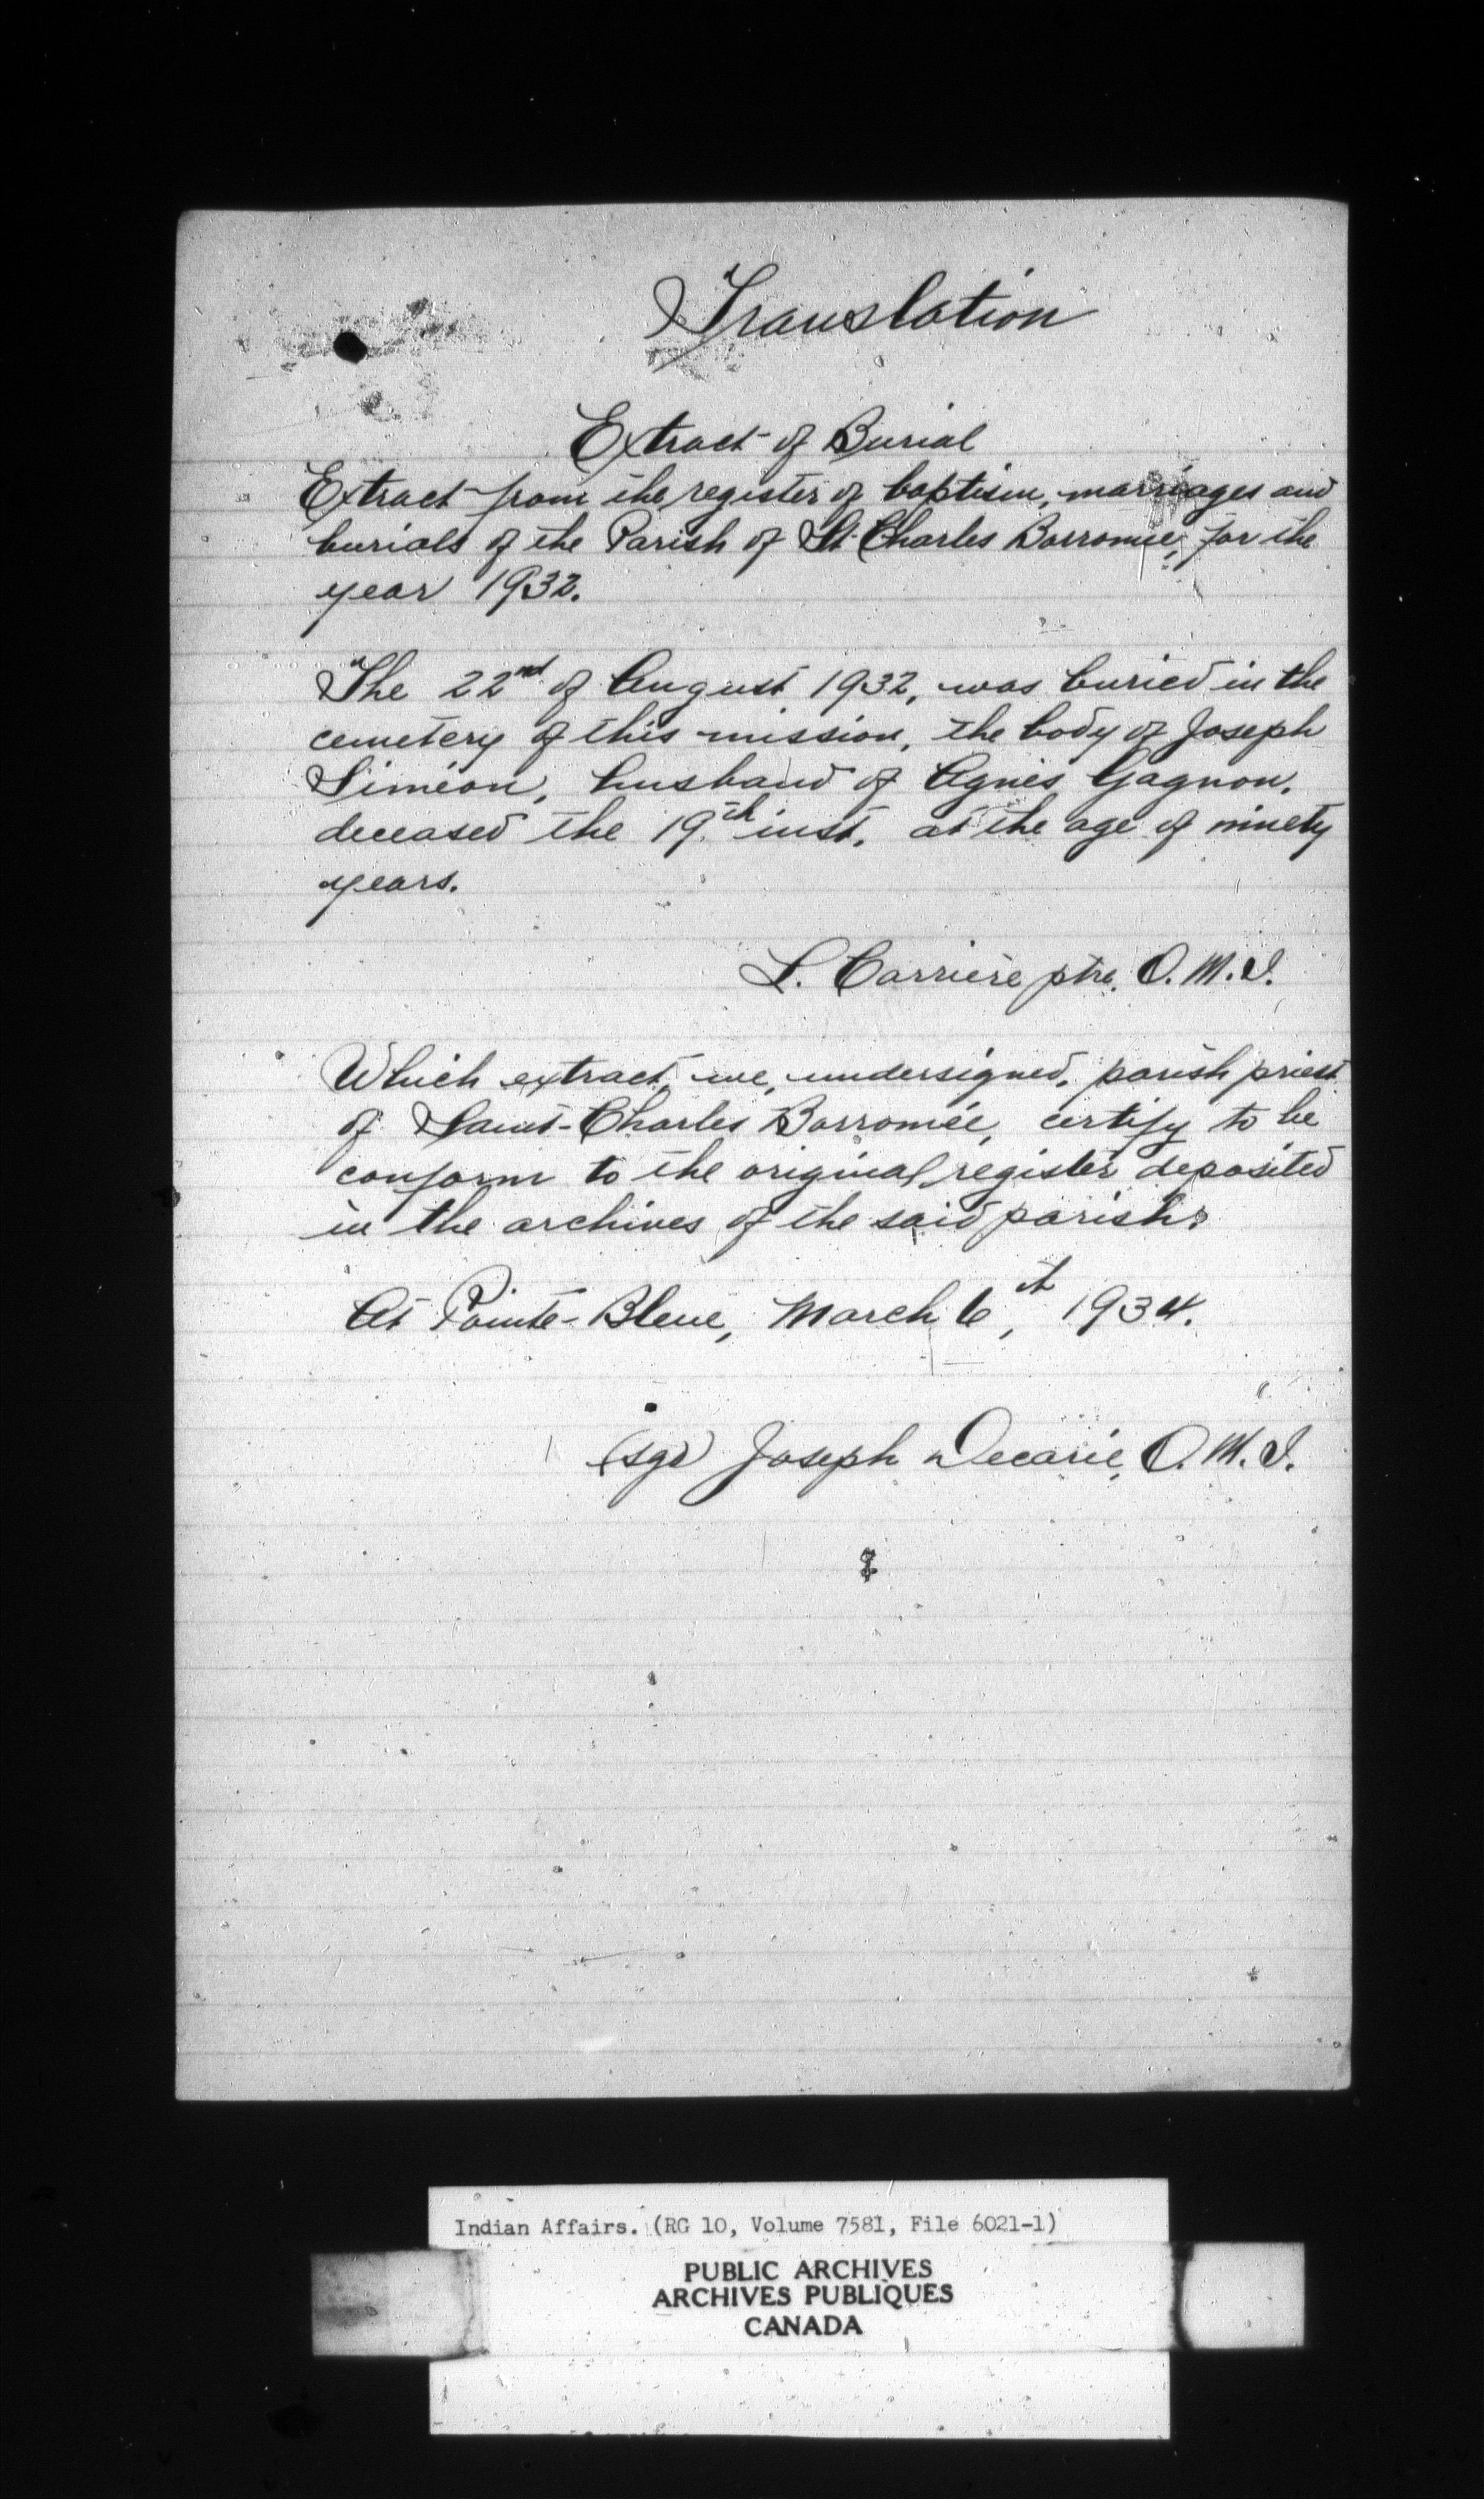 Translation
Extract of Burial
Extract from the register of baptism, marriages and
burials of the Parish of St. Charles Borromee, for the
year 1932.
The 22nd of August 1932, was buried in the
cemetery of this mission, the body of Joseph
Siméon, husband of Agnès Gagnon,
deceased the 19th inst, at the age of ninety
years.
L. Carrière ptre. O.M.I.
Which extract, we, undersigned, parish priest
of Saint-Charles Borromée, certify to be
conform to the original register deposited
in the archives of the said parish.
At Pointe-Bleue, March 6th, 1934.
(sgd) Joseph Decarie, O.M.I.
Indian Affairs. (RG 10, Volume 7581, File 6021-1)
PUBLIC ARCHIVES
ARCHIVES PUBLIQUES
CANADA